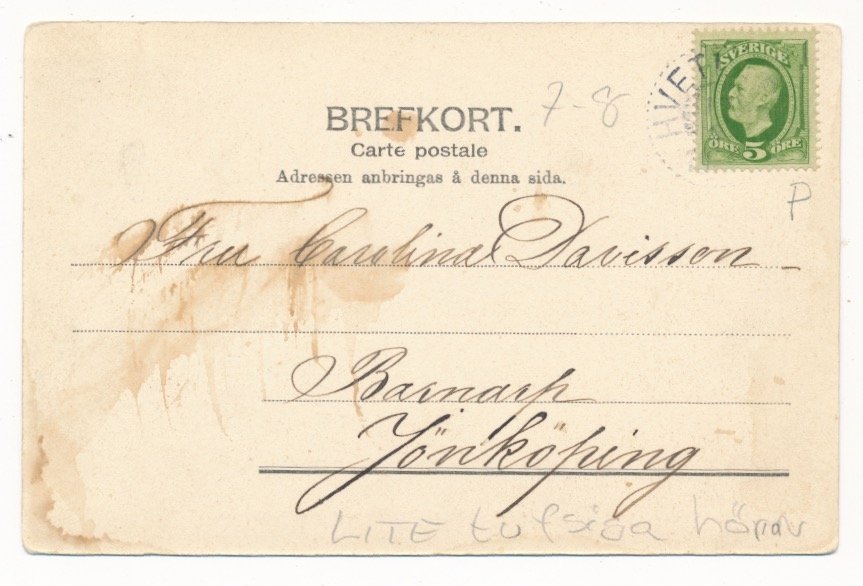 BREFKORT.
7-8
Carte postale
Adressen anbringas å denna sida.
HVET
SVERIGE
ÖRE 5 ÖRE
P
Fru Carolina Davisson
Barnarp
Jönköping
LITE tufsiga hörn